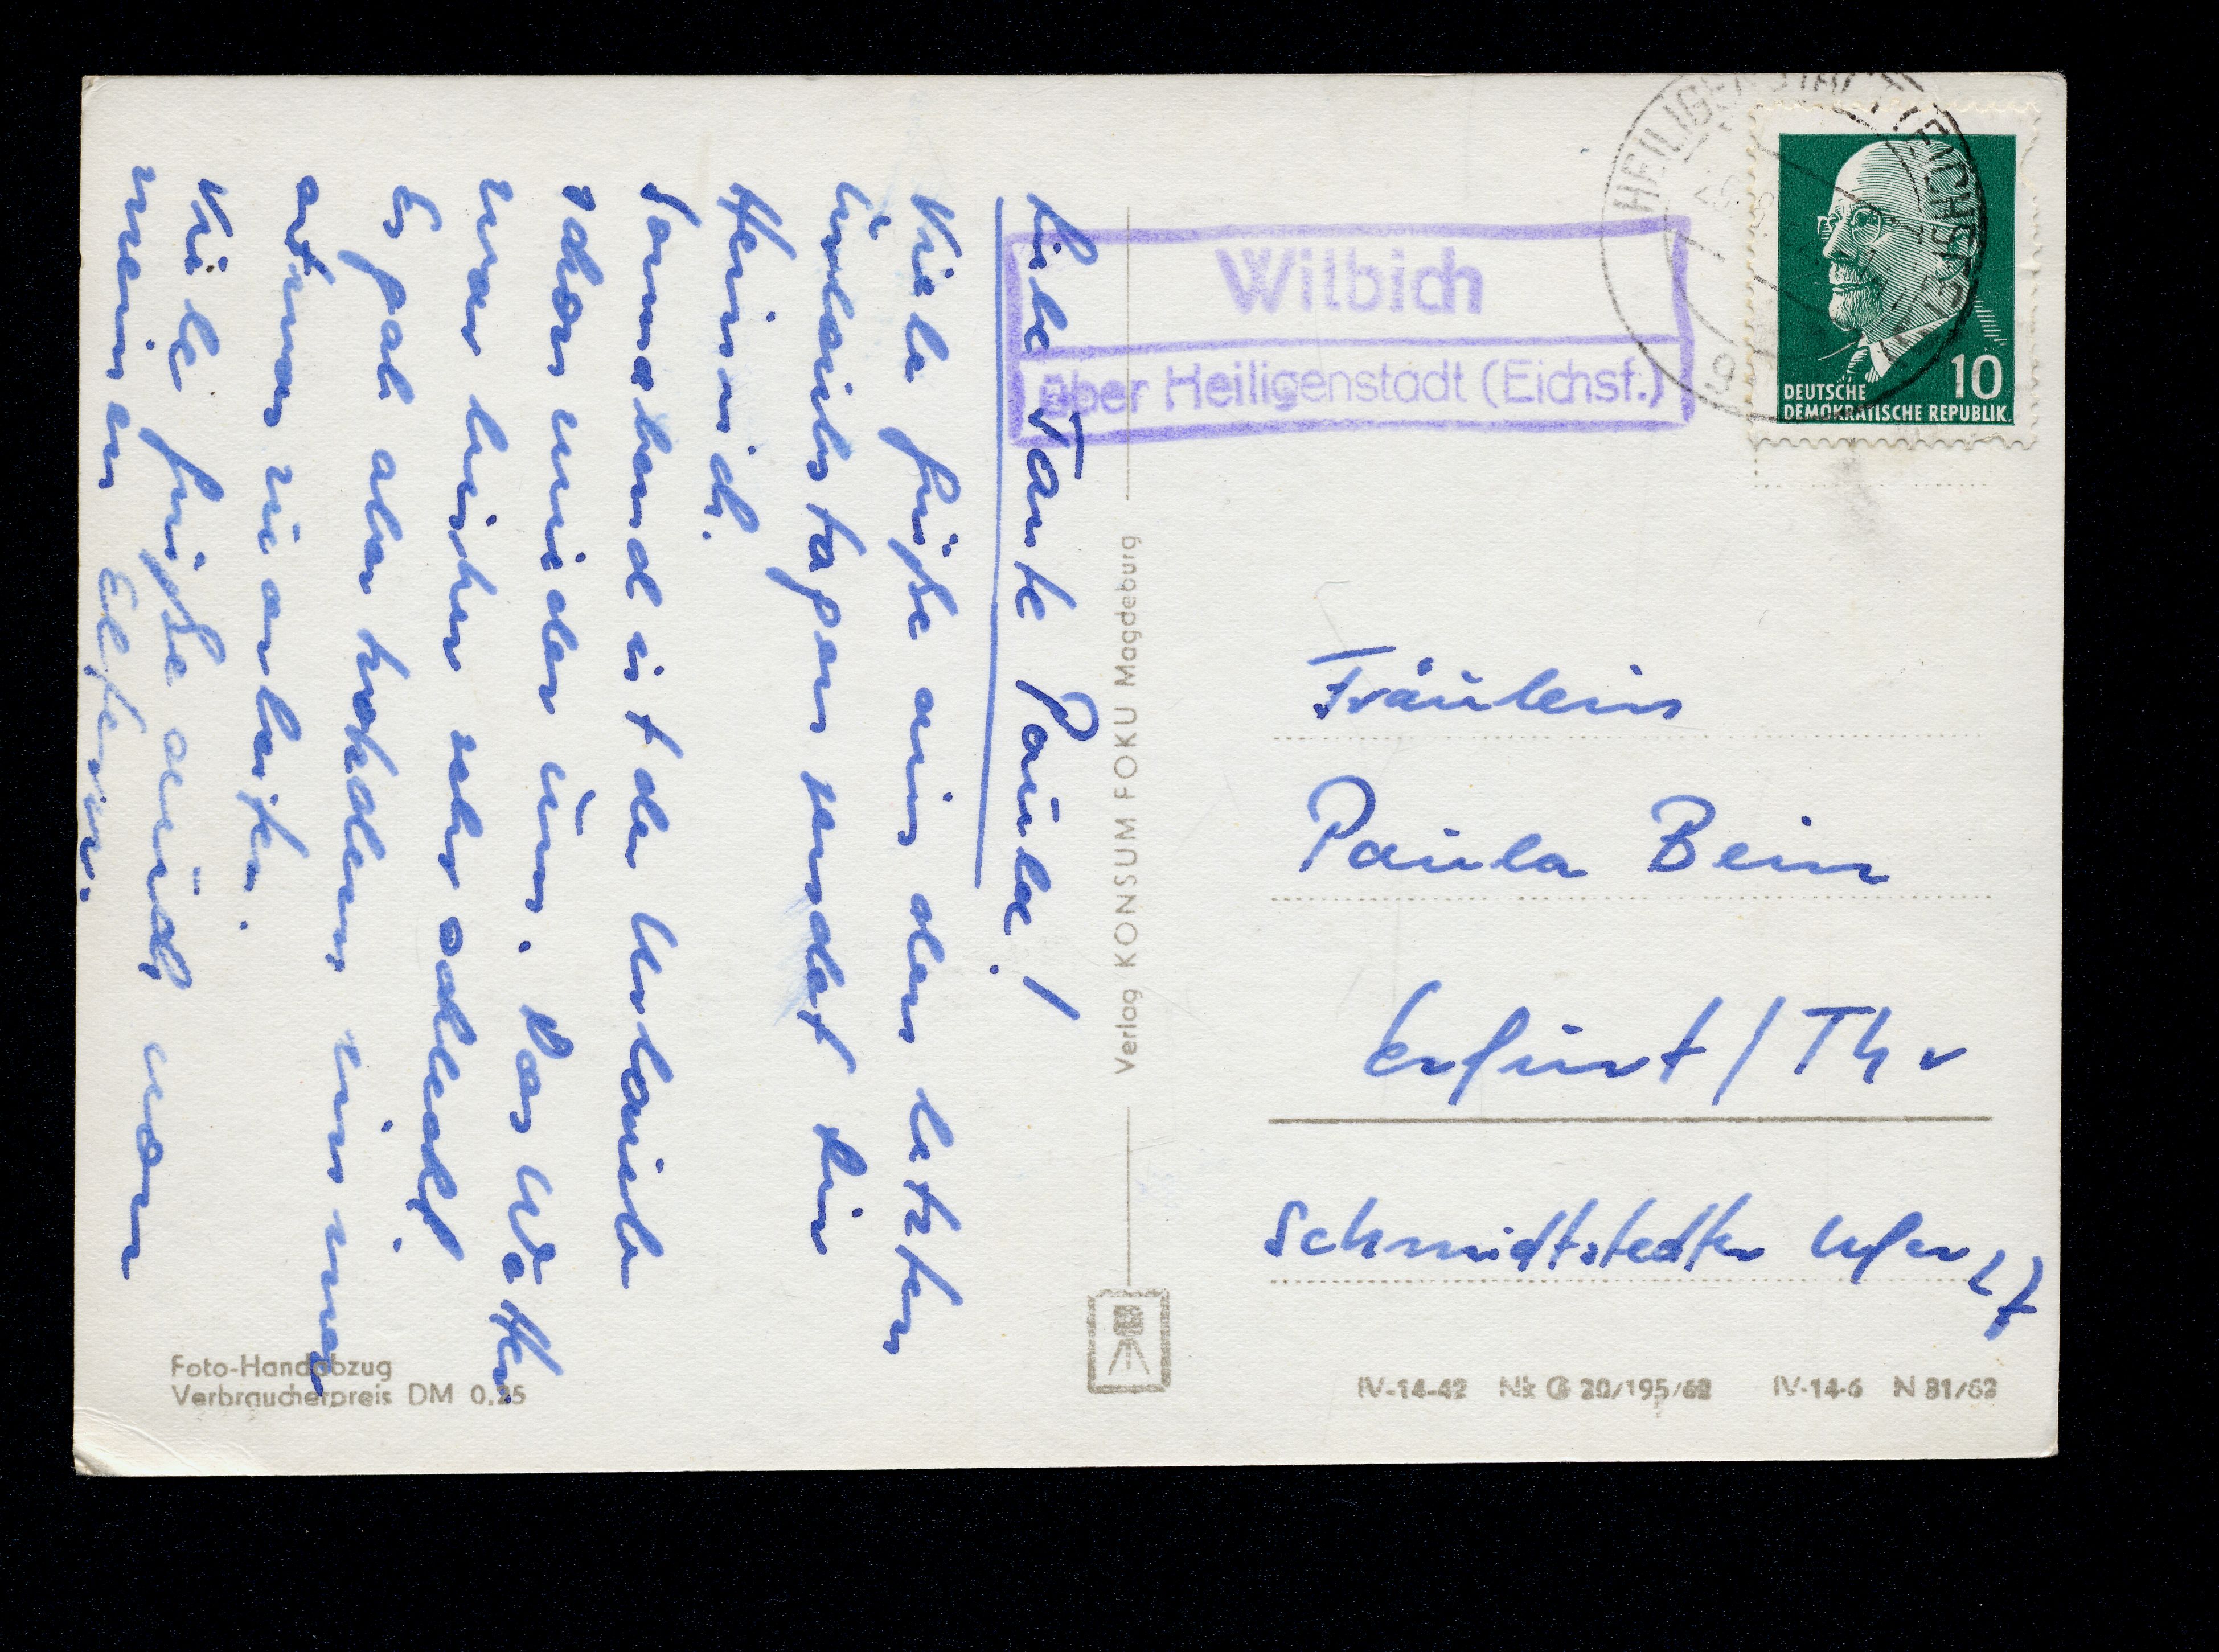 Liebe Tante Paula!
Viele Grüße aus den letzten
Urlaubstagen sendet Dir
Heinrich.
Sonnabend ist der Urlaub
schon wieder um. Das Wetter
war bisher sehr schlecht.
Es gab aber trotzdem immer
etwas zu arbeiten.
Viele Grüße auch von
meinen Eltern.
Wilbich
über Heiligenstadt (Eichsf.)
HEILIGENSTADT (EICHSFELD)
DEUTSCHE 10
DEMOKRATISCHE REPUBLIK
Fräulein
Paula Bein
Erfurt / Thr
Schmidtstedter Ufer 27
Verlag KONSUM FOKU Magdeburg
Foto-Handabzug
Verbraucherpreis DM 0.25
IV-14-42 Nk G 20/195/62 IV-14-6 N 81/62